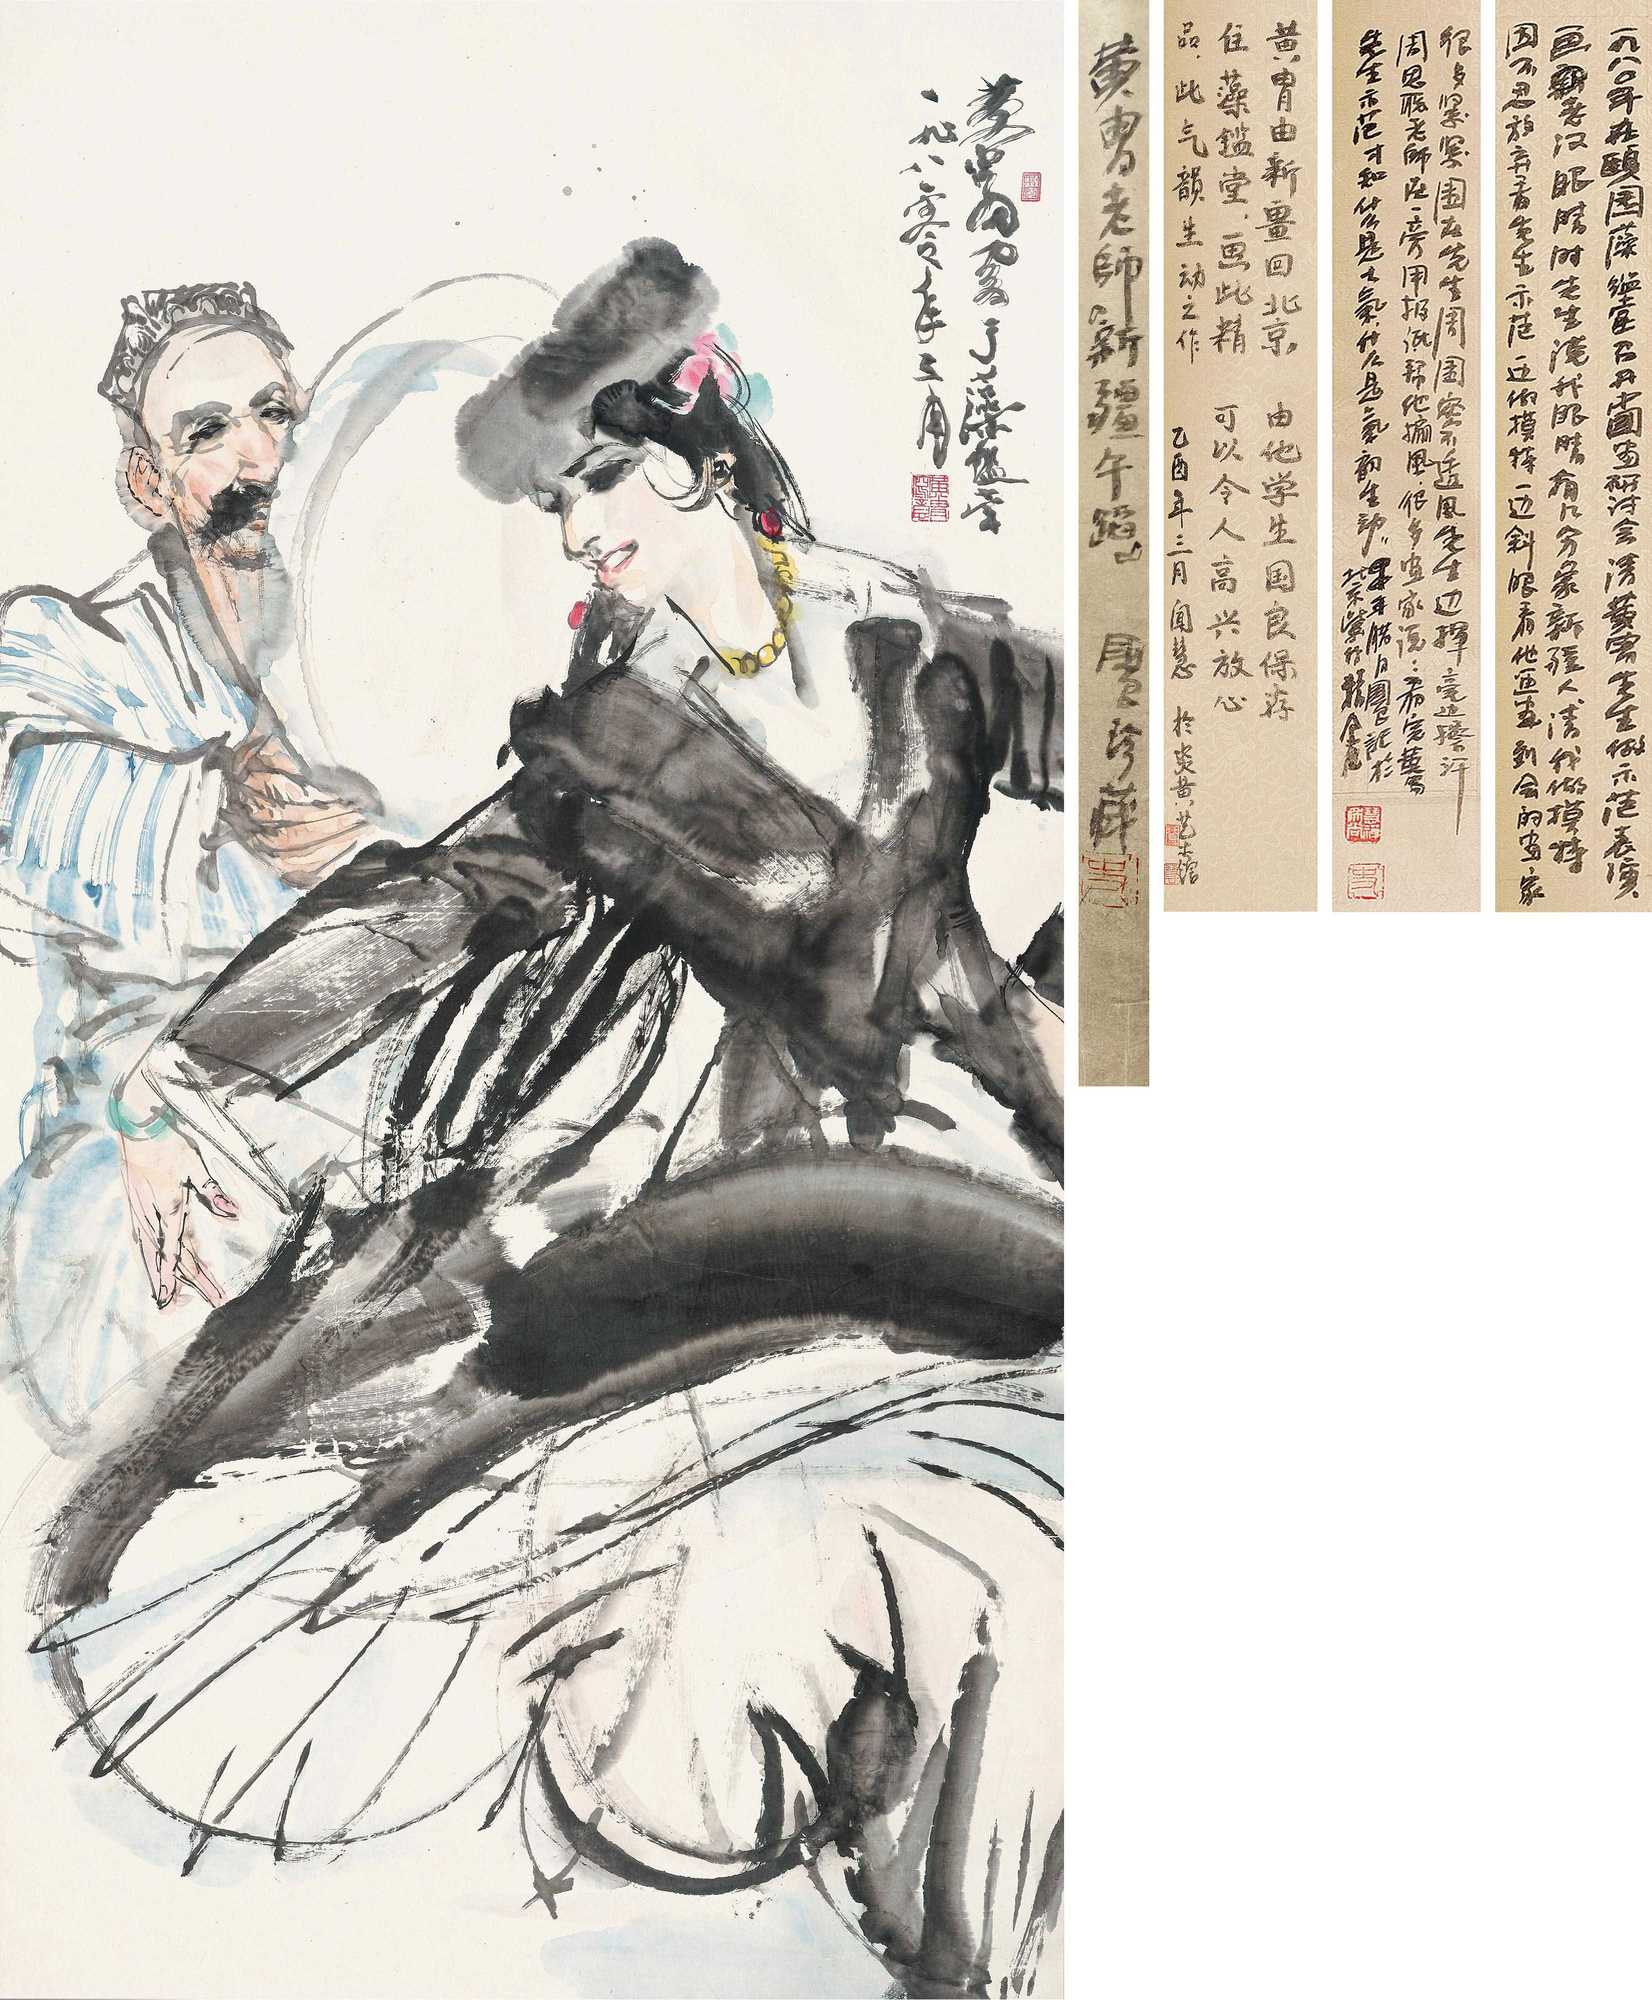 黄胄写于藻鉴堂
一九八零年三月
黄胄老师《新疆午蹈》 国良珍藏
黄胄由新疆回北京
住藻鑑堂，画此精
品，此气韵生动之作
由他学生国良保存
可以令人高兴放心
乙酉年三月 闻慧 於炎黄艺术馆
很多画家围在先生周围密不透风先生边挥毫边擦汗
周思聪老师在一旁用报纸帮他搧风，很多画家说：“看完黄胄
先生示范才知什么是大气什么是气韵生动”
年腊月国良记於
北京
一九八〇年在颐园藻鑑堂召开中国画研讨会请黄胄先生做示范表演
画新老汉眼睛时先生说我眼睛有几分象新疆人请我做模特
因不忍放弃看先生示范一边做模特一边斜眼看他画画到会的画家